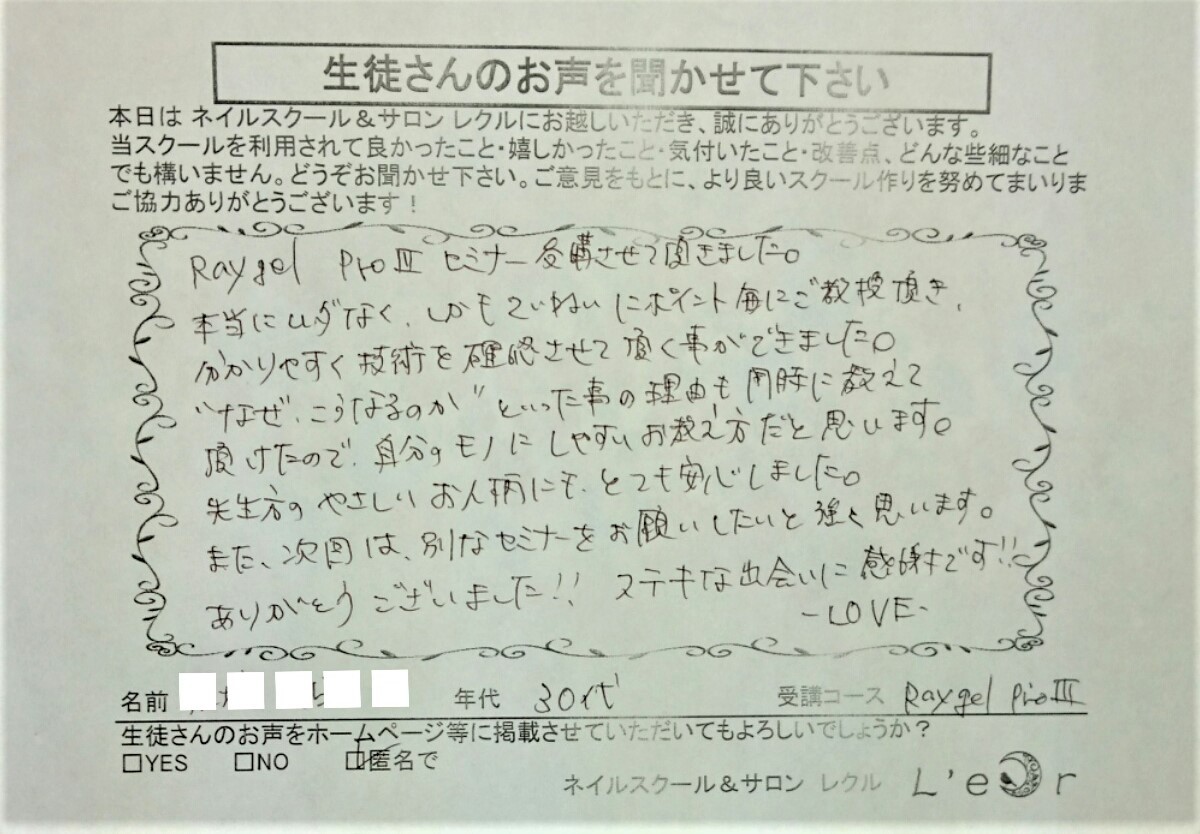 生徒さんのお声を聞かせて下さい
本日は ネイルスクール＆サロン レクルにお越しいただき、誠にありがとうございます。
当スクールを利用されて良かったこと・嬉しかったこと・気付いたこと・改善点、どんな些細なこと
でも構いません。どうぞお聞かせ下さい。ご意見をもとに、より良いスクール作りを努めてまいりま
ご協力ありがとうございます！
Raygel ProⅢ セミナー受講させて頂きました。
本当にムダなく、しかもていねいにポイント毎にご教授頂き、
分かりやすく技術を確認させて頂く事ができました。
"なぜ、こうなるのか"といった事の理由も同時に教えて
頂けたので、自分のモノにしやすいお教え方だと思います。
先生方のやさしいお人柄にも、とても安心しました。
また、次回は、別なセミナーをお願いしたいと強く思います。
ありがとうございました!! ステキな出会いに感謝です!!
-LOVE-
名前 年代 30代 受講コース Raygel ProⅢ
生徒さんのお声をホームページ等に掲載させていただいてもよろしいでしょうか？
□YES □NO ☑匿名で
ネイルスクール＆サロン レクル L'eCr